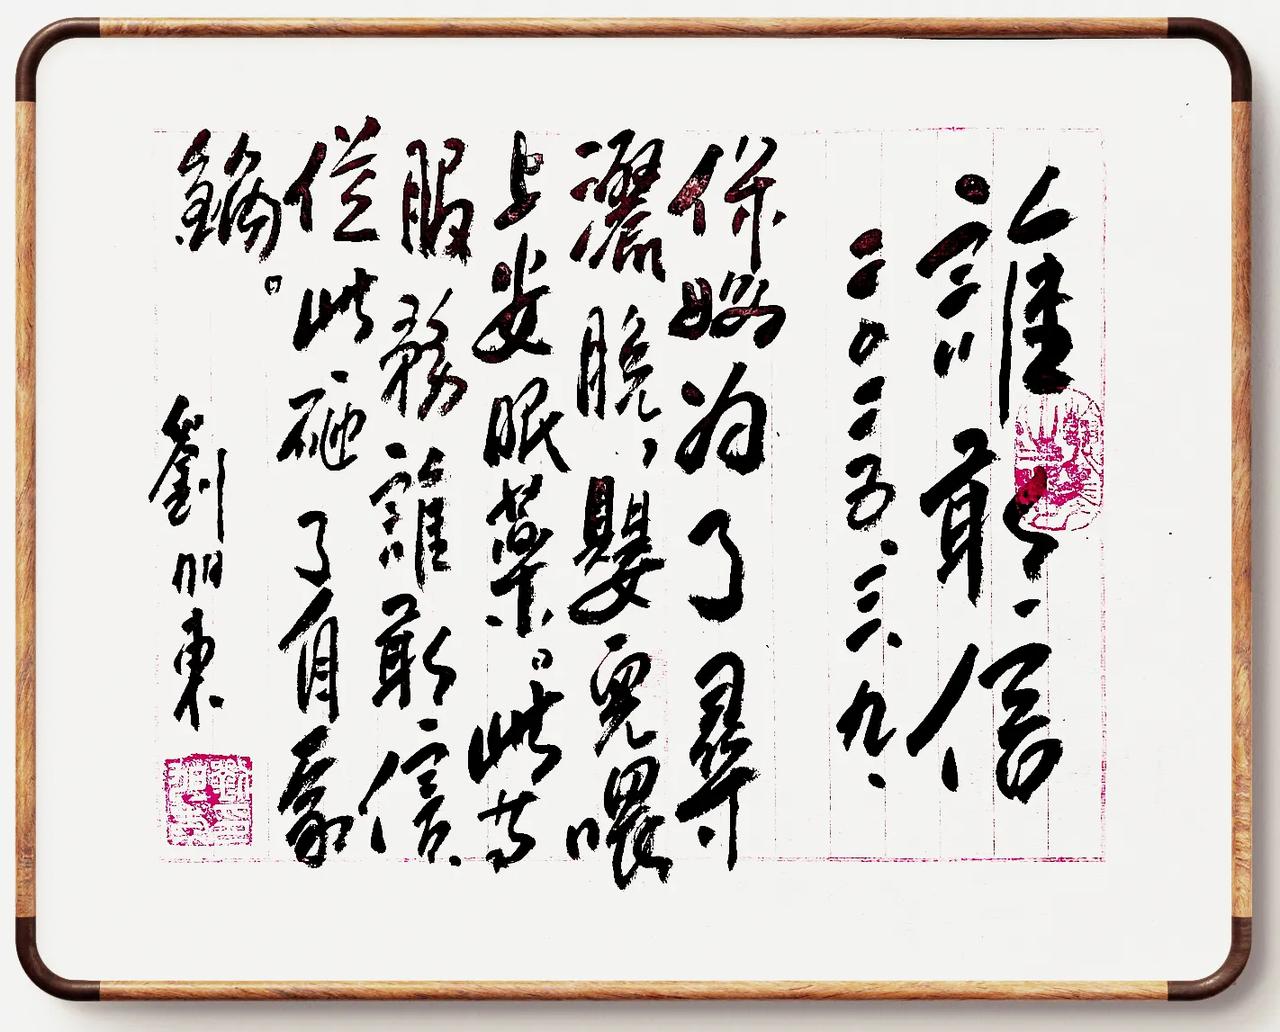 誰敢信
二〇二五.三.九.
保姆为了尋
灑脱，嬰兒喂
上安眠藥。此等
服務誰敢信.
從此砸了自家
鍋。
劉明東